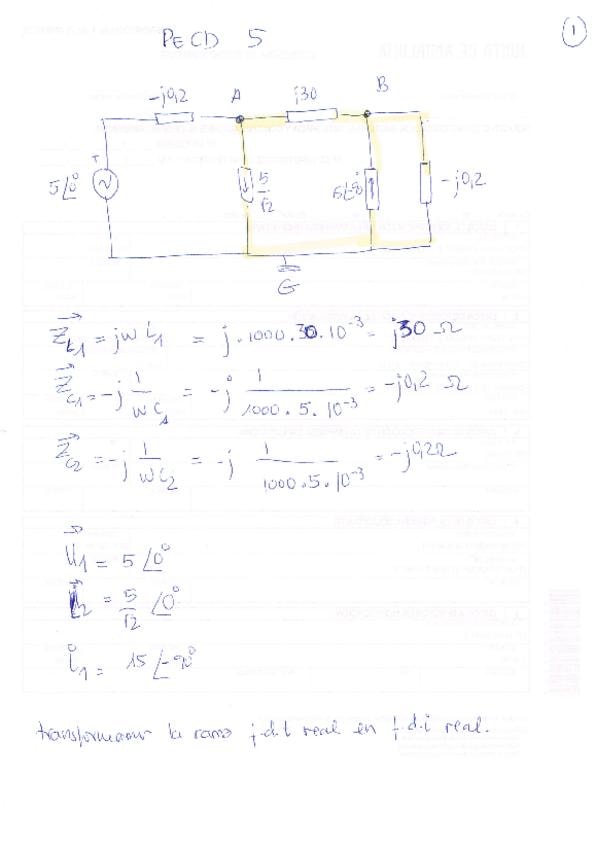 PECD 5
1
-j0,2 A j30 B
+
5∠0° 5/√2 15∠-90° -j0,2
G
Z⃗L1 = jω L1 = j·1000·30·10⁻³ = j30 Ω
Z⃗C1 = -j 1/ωC1 = -j 1/1000·5·10⁻³ = -j0,2 Ω
Z⃗C2 = -j 1/ωC2 = -j 1/1000·5·10⁻³ = -j0,2Ω
U⃗1 = 5 ∠0°
I⃗2 = 5/√2 ∠0°
i1 = 15 ∠-90°
la rama real en f.d.i real.